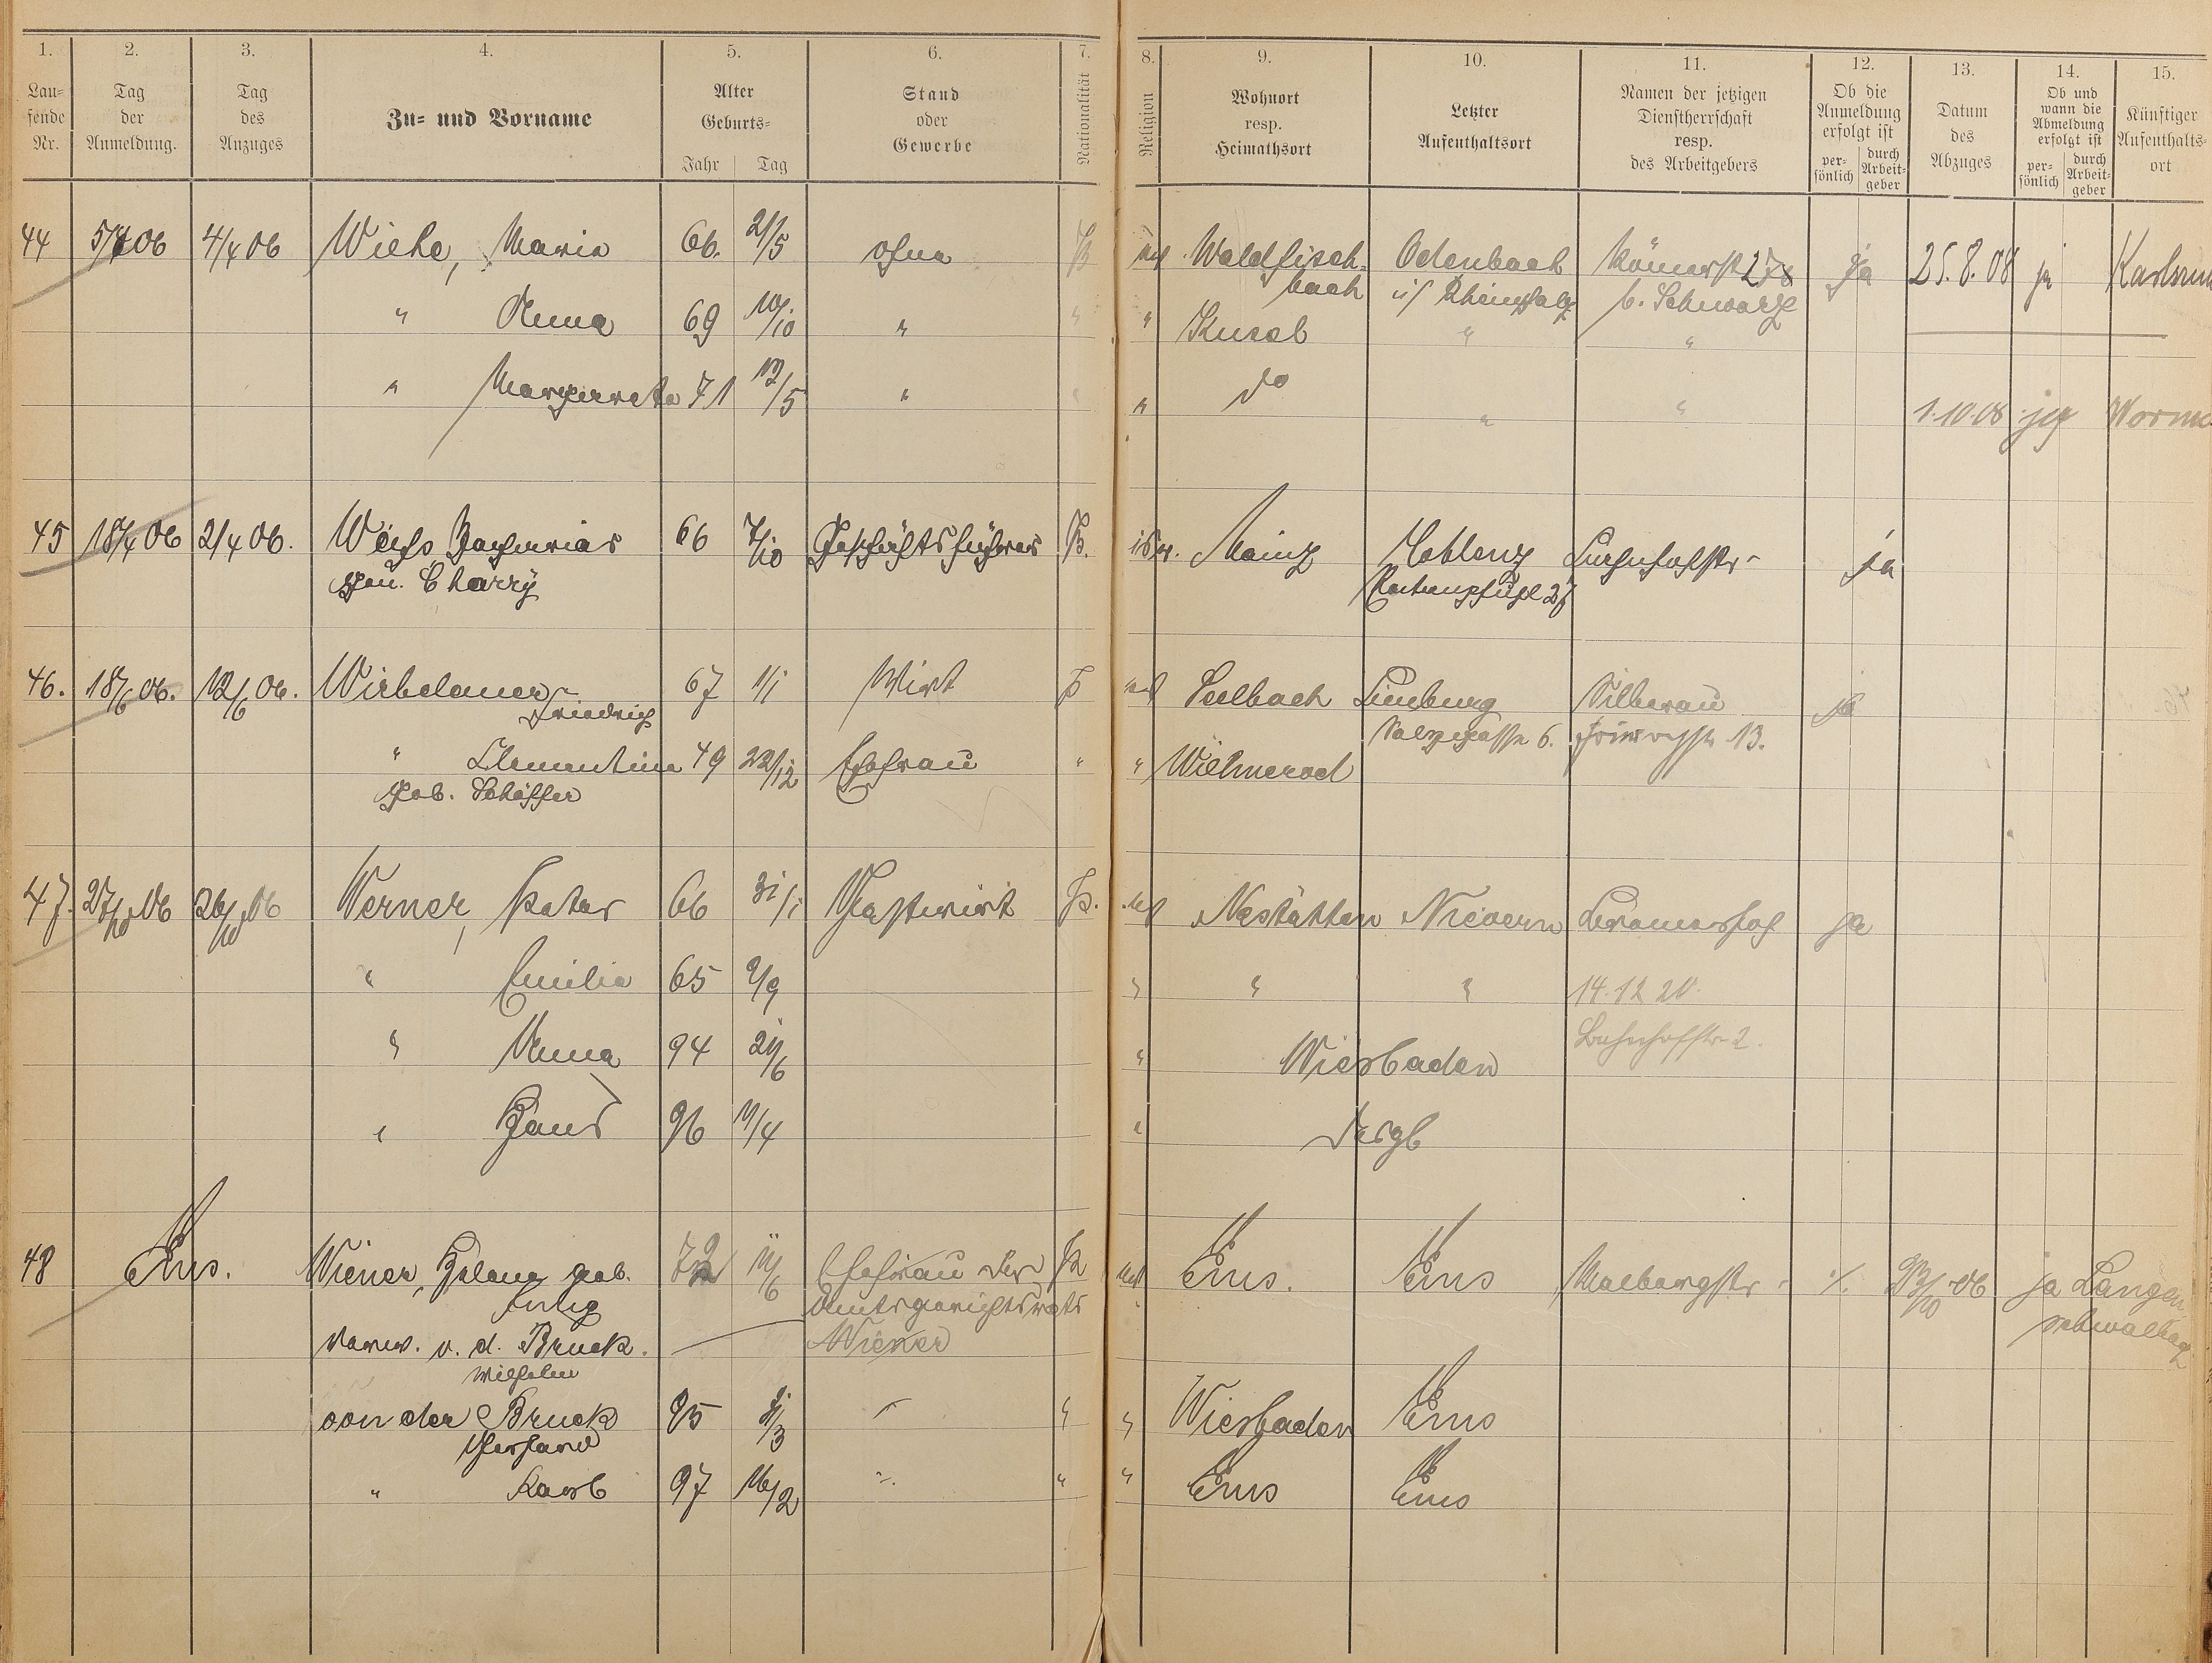 1. 2. 3. 4. 5. 6. 7. 8. 9. 10. 11. 12. 13. 14. 15.
Lau-
fende
Nr.
Tag
der
Anmeldung.
Tag
des
Anzuges
Zu- und Vorname
Alter
Geburts-
Jahr Tag
Stand
oder
Gewerbe
Nationalität
Religion
Wohnort
resp.
Heimathsort
Letzter
Aufenthaltsort
Namen der jetzigen
Dienstherrschaft
resp.
des Arbeitgebers
Ob die
Anmeldung
erfolgt ist
per-
sönlich
durch
Arbeit-
geber
Datum
des
Abzuges
Ob und
wann die
Abmeldung
erfolgt ist
per-
sönlich
durch
Arbeit-
geber
Künftiger
Aufenthalts-
ort
44 5/4 06 4/4 06 Wiehe, Maria 66. 21/5 ohne P Waldfisch- Odenbach Römerst 27 ja 25.8.08 ja Karlsruh
bach Rheinpfalz b. Schwarze
" Anna 69 10/10 " " " Kusel " "
" Margareta 71 12/5 " " " do " " 1.10.08 ja Worms
45 18/4 06 2/4 06. Weihs Zacharias 66 7/10 Geschäftsführer P. isr. Mainz Koblenz ja
gen. Charry 27
46. 18/6 06. 12/6 06. Wirbelauer 67 1/1 Wirt P Seelbach Limburg Silberau ja
Friedrich Salzgasse 6. 13.
" Clementine 49 22/12 Ehefrau " " Wilmerod
geb. Schäffer
47. 27/10 06 26/10 06 Werner, Peter 66 31/1 Gastwirt P. Nastätten Nievern Cramerhof ja
" Emilie 65 2/9 " " " 14.12 20.
" Anna 94 21/6 " Wiesbaden Bahnhofstr 2.
" Hans 96 11/4 " desgl
48 Ems. Wiener, Helene geb. 72 11/6 Ehefrau des P Ems. Ems Malbergstr ./. 23/10 06 ja Langen
Amtsgerichtsrats schwalbach
verw. v. d. Bruck. Wiener
Wilhelm
von der Bruck 95 " " Wiesbaden Ems
Gerhard
" Karl 97 16/2 " " Ems Ems